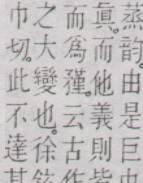 蒸韵由是巨
眞而他義則皆
而爲殣云古作
之大變也徐鉉
巾切此不達其